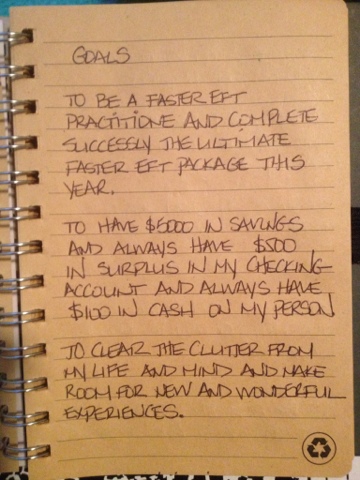 GOALS
TO BE A FASTER EFT
PRACTITIONE AND COMPLETE
SUCCESSLY THE ULTIMATE
FASTER EFT PACKAGE THIS
YEAR.
TO HAVE $5000 IN SAVINGS
AND ALWAYS HAVE $500
IN SURPLUS IN MY CHECKING
ACCOUNT AND ALWAYS HAVE
$100 IN CASH ON MY PERSON
TO CLEAR THE CLUTTER FROM
MY LIFE AND MIND AND MAKE
ROOM FOR NEW AND WONDERFUL
EXPERIENCES.